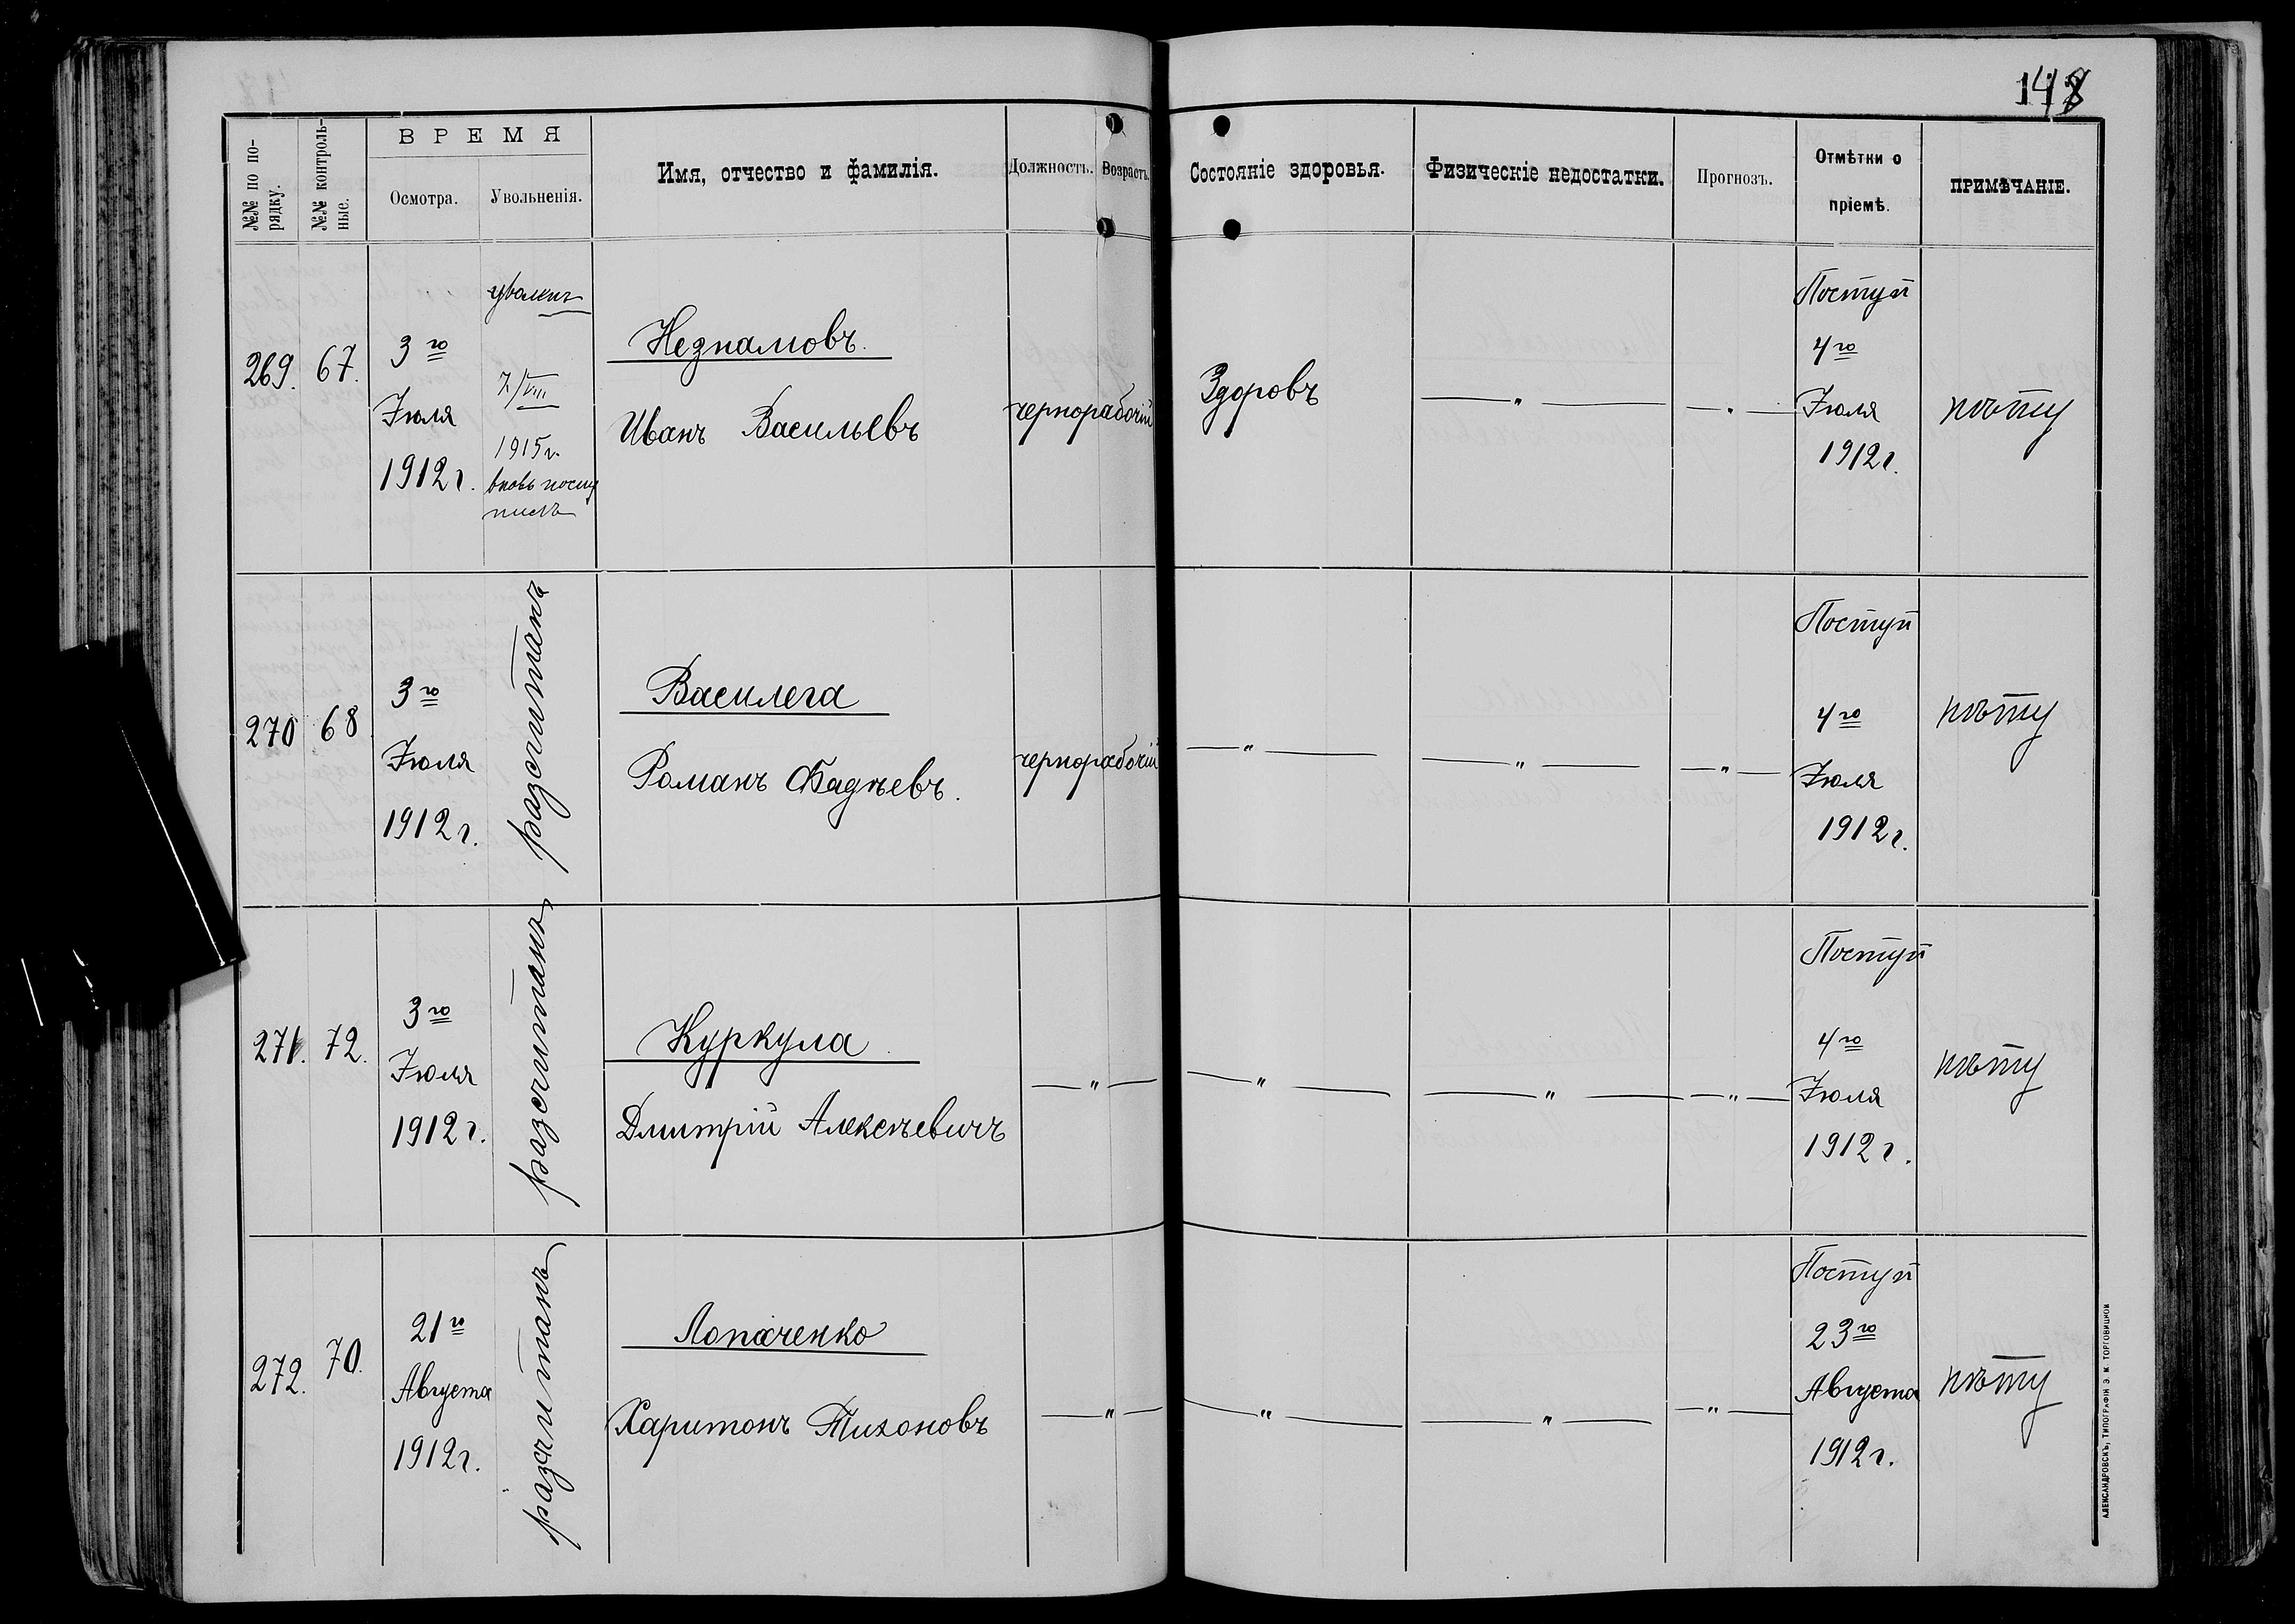 148
№№ по по-
рядку.
№№ контроль-
ные.
ВРЕМЯ
Осмотра.
Увольненія.
Имя, отчество и фамилія.
Должность.
Возрастъ.
Состояніе здоровья.
Физическіе недостатки.
Прогнозъ.
Отмѣтки о
пріемѣ.
ПРИМѢЧАНІЕ.
269. 67.
3го
Іюля
1912 г.
уволенъ
7/VIII
1915 г.
вновь посту
пилъ
Незнамовъ.
Иванъ Васильевъ
чернорабочій
Здоровъ
— " — — " —
Поступ
4го
Іюля
1912 г.
нѣту
270 68
3го
Іюля
1912 г.
разсчитанъ
Василега
Романъ Фадѣевъ.
чернорабочій
— " — — " — — " —
Поступ
4го
Іюля
1912 г.
нѣту
271. 72.
3го
Іюля
1912 г.
разсчитанъ
Куркула
Дмитрій Алексѣевичъ
— " — — " — — " — — " —
Поступ
4го
Іюля
1912 г.
нѣту
272. 70.
21го
Августа
1912 г.
разсчитанъ
Лопаченко
Харитонъ Тихоновъ
— " — — " — — " — — " —
Поступ
23го
Августа
1912 г.
нѣту
АЛЕКСАНДРОВСКЪ, ТИПОГРАФІЯ Э. И. ТОРГОВИЦКОЙ